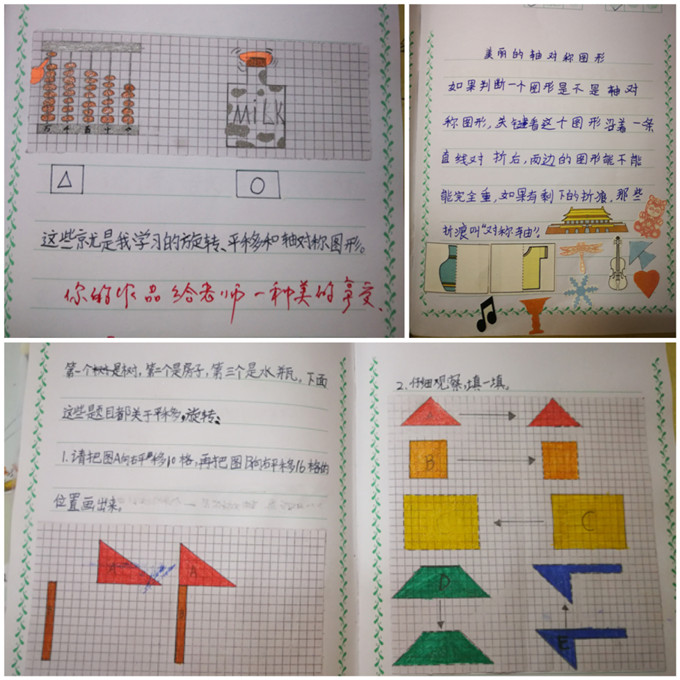 MiLK
这些就是我学习的旋转、平移和轴对称图形。
你的作品给老师一种美的享受、
美丽的轴对称图形
如果判断一个图形是不是轴对
称图形,关键看这个图形沿着一条
直线对折后,两边的图形能不能
能完全重,如果有剩下的折浪,那些
折浪叫“对称轴”。
第一个是树,第二个是房子,第三个是水瓶。下面
这些题目都关于平移,旋转、
1.请把图A向右平移10格,再把图B向右平移16格的
位置画出来。
A
A
2.仔细观察,填一填。
A
B
C
D
E